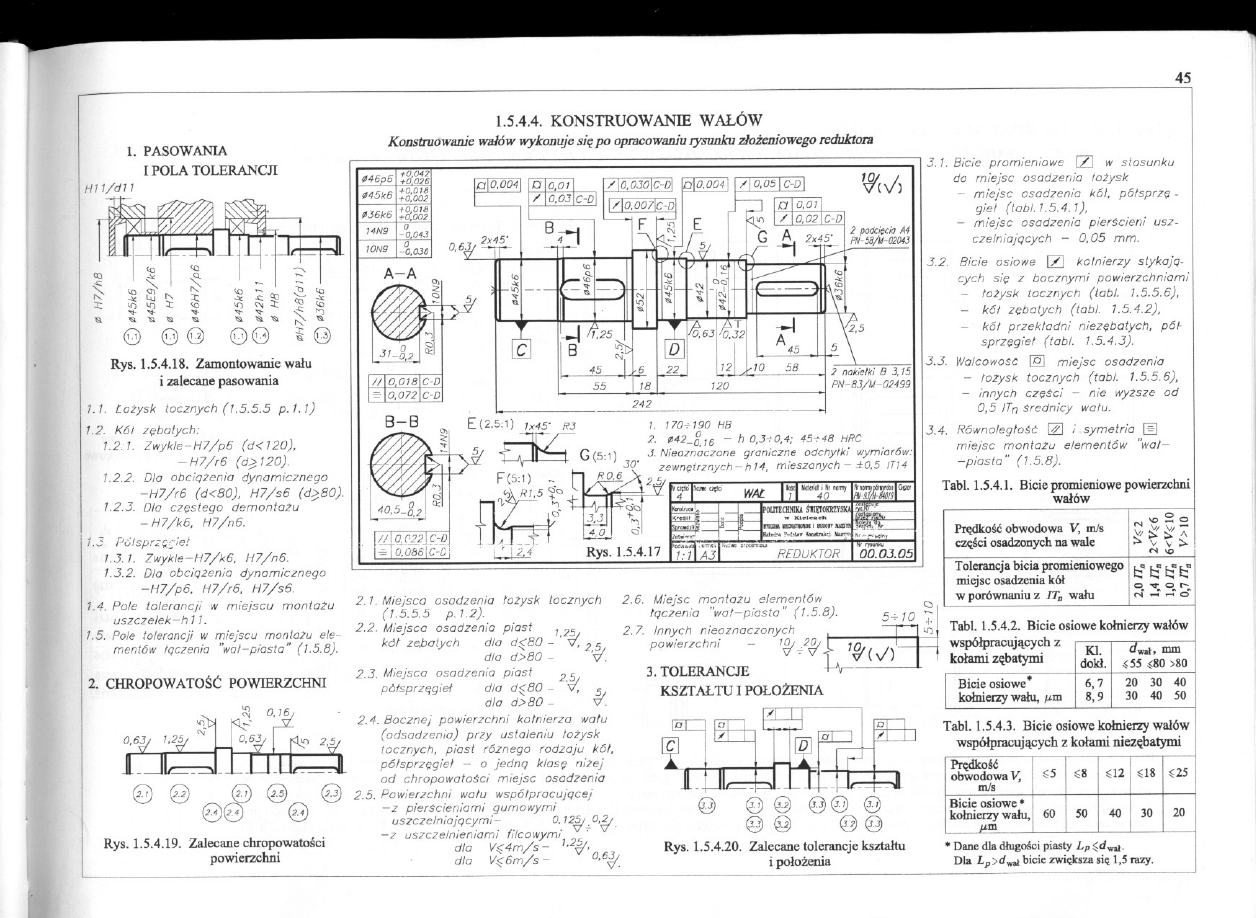 45
1.5.4.4. KONSTRUOWANIE WAŁÓW
Konstruowanie wałów wykonuje się po opracowaniu rysunku złożeniowego reduktora
1. PASOWANIA
I POLA TOLERANCJI
H11/d11
ø H7/h8
ø45k6
ø45E9/k6
ø H7
ø46H7/p6
ø45k6
ø42h11
ø H8
øH7/h8(d11)
ø36k6
1.1 1.1 1.2 1.1 1.4 1.3
Rys. 1.5.4.18. Zamontowanie wału
i zalecane pasowania
1.1. Łożysk tocznych (1.5.5.5 p.1.1)
1.2. Kół zębatych:
1.2.1. Zwykle-H7/p6 (d<120),
-H7/r6 (d≥120).
1.2.2. Dla obciążenia dynamicznego
-H7/r6 (d<80), H7/s6 (d≥80).
1.2.3. Dla częstego demontażu
-H7/k6, H7/n6.
1.3. Półsprzęgieł
1.3.1. Zwykle-H7/k6, H7/n6.
1.3.2. Dla obciążenia dynamicznego
-H7/p6, H7/r6, H7/s6.
1.4. Pole tolerancji w miejscu montażu
uszczelek-h11.
1.5. Pole tolerancji w miejscu montażu ele-
mentów łączenia "wał-piasta" (1.5.8).
2. CHROPOWATOŚĆ POWIERZCHNI
0,63 1,25 2,5 1,25 0,63 0,16 5 2,5
2.1 2.2 2.1 2.5 2.3
2.4 2.4 2.4
Rys. 1.5.4.19. Zalecane chropowatości
powierzchni
ø46p6 +0,042 +0,026
ø45k6 +0,018 +0,002
ø36k6 +0,018 +0,002
14N9 0 -0,043
10N9 0 -0,036
0,004
0,01
0,03 C-D
0,030 C-D
0,007 C-D
0,004
0,05 C-D
0,01
0,02 C-D
10 (√)
2 podcięcia A4
PN-58/M-02043
A-A
10N9
R0,3
31 0 -0,2
// 0,018 C-D
0,072 C-D
B-B
14N9
R0,3
40,5 0 -0,2
// 0,022 C-D
0,088 C-D
0,63 2x45° B 4 F 1,25 E 5 G A 2x45°
ø45k6 ø46p6 ø52 ø45k6 ø42 ø42 0 -0,16 ø36k6
C B 1,25 2,5 D 0,63 0,32 A 2,5
45 5
45 6 22 12 10 58
55 18 120
242
2 nakiełki B 3,15
PN-83/M-02499
E(2,5:1) 1x45° R3
G(5:1) 30°
F(5:1)
R1,5
2,4
R0,6
3,3
4,0
2,5
1. 170÷190 HB
2. ø42 0 -0,16 - h 0,3÷0,4; 45÷48 HRC
3. Nieoznaczone graniczne odchyłki wymiarów:
zewnętrznych-h14, mieszanych-±0,5 IT14
4 WAŁ 1 40
POLITECHNIKA ŚWIĘTOKRZYSKA
w Kielcach
1:1 A3 REDUKTOR 00.03.05
Rys. 1.5.4.17
2.1. Miejsca osadzenia łożysk tocznych
(1.5.5.5 p.1.2).
2.2. Miejsca osadzenia piast
kół zębatych dla d≤80 - 1,25,
dla d>80 - 2,5.
2.3. Miejsca osadzenia piast
półsprzęgieł dla d≤80 - 2,5,
dla d>80 - 5.
2.4. Bocznej powierzchni kołnierza wału
(odsadzenia) przy ustaleniu łożysk
tocznych, piast różnego rodzaju kół,
półsprzęgieł - o jedną klasę niżej
od chropowatości miejsc osadzenia
2.5. Powierzchni wału współpracującej
-z pierścieniami gumowymi
uszczelniającymi- 0,125÷0,2.
-z uszczelnieniami filcowymi
dla V≤4m/s- 1,25,
dla V≤6m/s- 0,63.
2.6. Miejsc montażu elementów
łączenia "wał-piasta" (1.5.8).
2.7. Innych nieoznaczonych
powierzchni - 10÷20.
5÷10
5÷10
10 (√)
3. TOLERANCJE
KSZTAŁTU I POŁOŻENIA
C D
3.3 3.1 3.2 3.3 3.1 3.1
3.3 3.2 3.2 3.3
Rys. 1.5.4.20. Zalecane tolerancje kształtu
i położenia
3.1. Bicie promieniowe w stosunku
do miejsc osadzenia łożysk
- miejsc osadzenia kół, półsprzę-
gieł (tabl.1.5.4.1),
- miejsc osadzenia pierścieni usz-
czelniających - 0,05 mm.
3.2. Bicie osiowe kołnierzy stykają-
cych się z bocznymi powierzchniami
- łożysk tocznych (tabl. 1.5.5.6),
- kół zębatych (tabl. 1.5.4.2),
- kół przekładni niezębatych, pół-
sprzęgieł (tabl. 1.5.4.3).
3.3. Walcowość miejsc osadzenia
- łożysk tocznych (tabl. 1.5.5.6),
- innych części - nie wyższe od
0,5 ITn średnicy wału.
3.4. Równoległość i symetria
miejsc montażu elementów "wał-
-piasta" (1.5.8).
Tabl. 1.5.4.1. Bicie promieniowe powierzchni
wałów
Prędkość obwodowa V, m/s
części osadzonych na wale
V≤2 2<V≤6 6<V≤10 V>10
Tolerancja bicia promieniowego
miejsc osadzenia kół
w porównaniu z ITn wału
2,0 ITn 1,4 ITn 1,0 ITn 0,7 ITn
Tabl. 1.5.4.2. Bicie osiowe kołnierzy wałów
współpracujących z
kołami zębatymi
Kl. dokł. dwał, mm
≤55 ≤80 >80
Bicie osiowe* 6, 7 20 30 40
kołnierzy wału, μm 8, 9 30 40 50
Tabl. 1.5.4.3. Bicie osiowe kołnierzy wałów
współpracujących z kołami niezębatymi
Prędkość
obwodowa V, ≤5 ≤8 ≤12 ≤18 ≤25
m/s
Bicie osiowe*
kołnierzy wału, 60 50 40 30 20
μm
* Dane dla długości piasty Lp≤dwał.
Dla Lp>dwał bicie zwiększa się 1,5 razy.